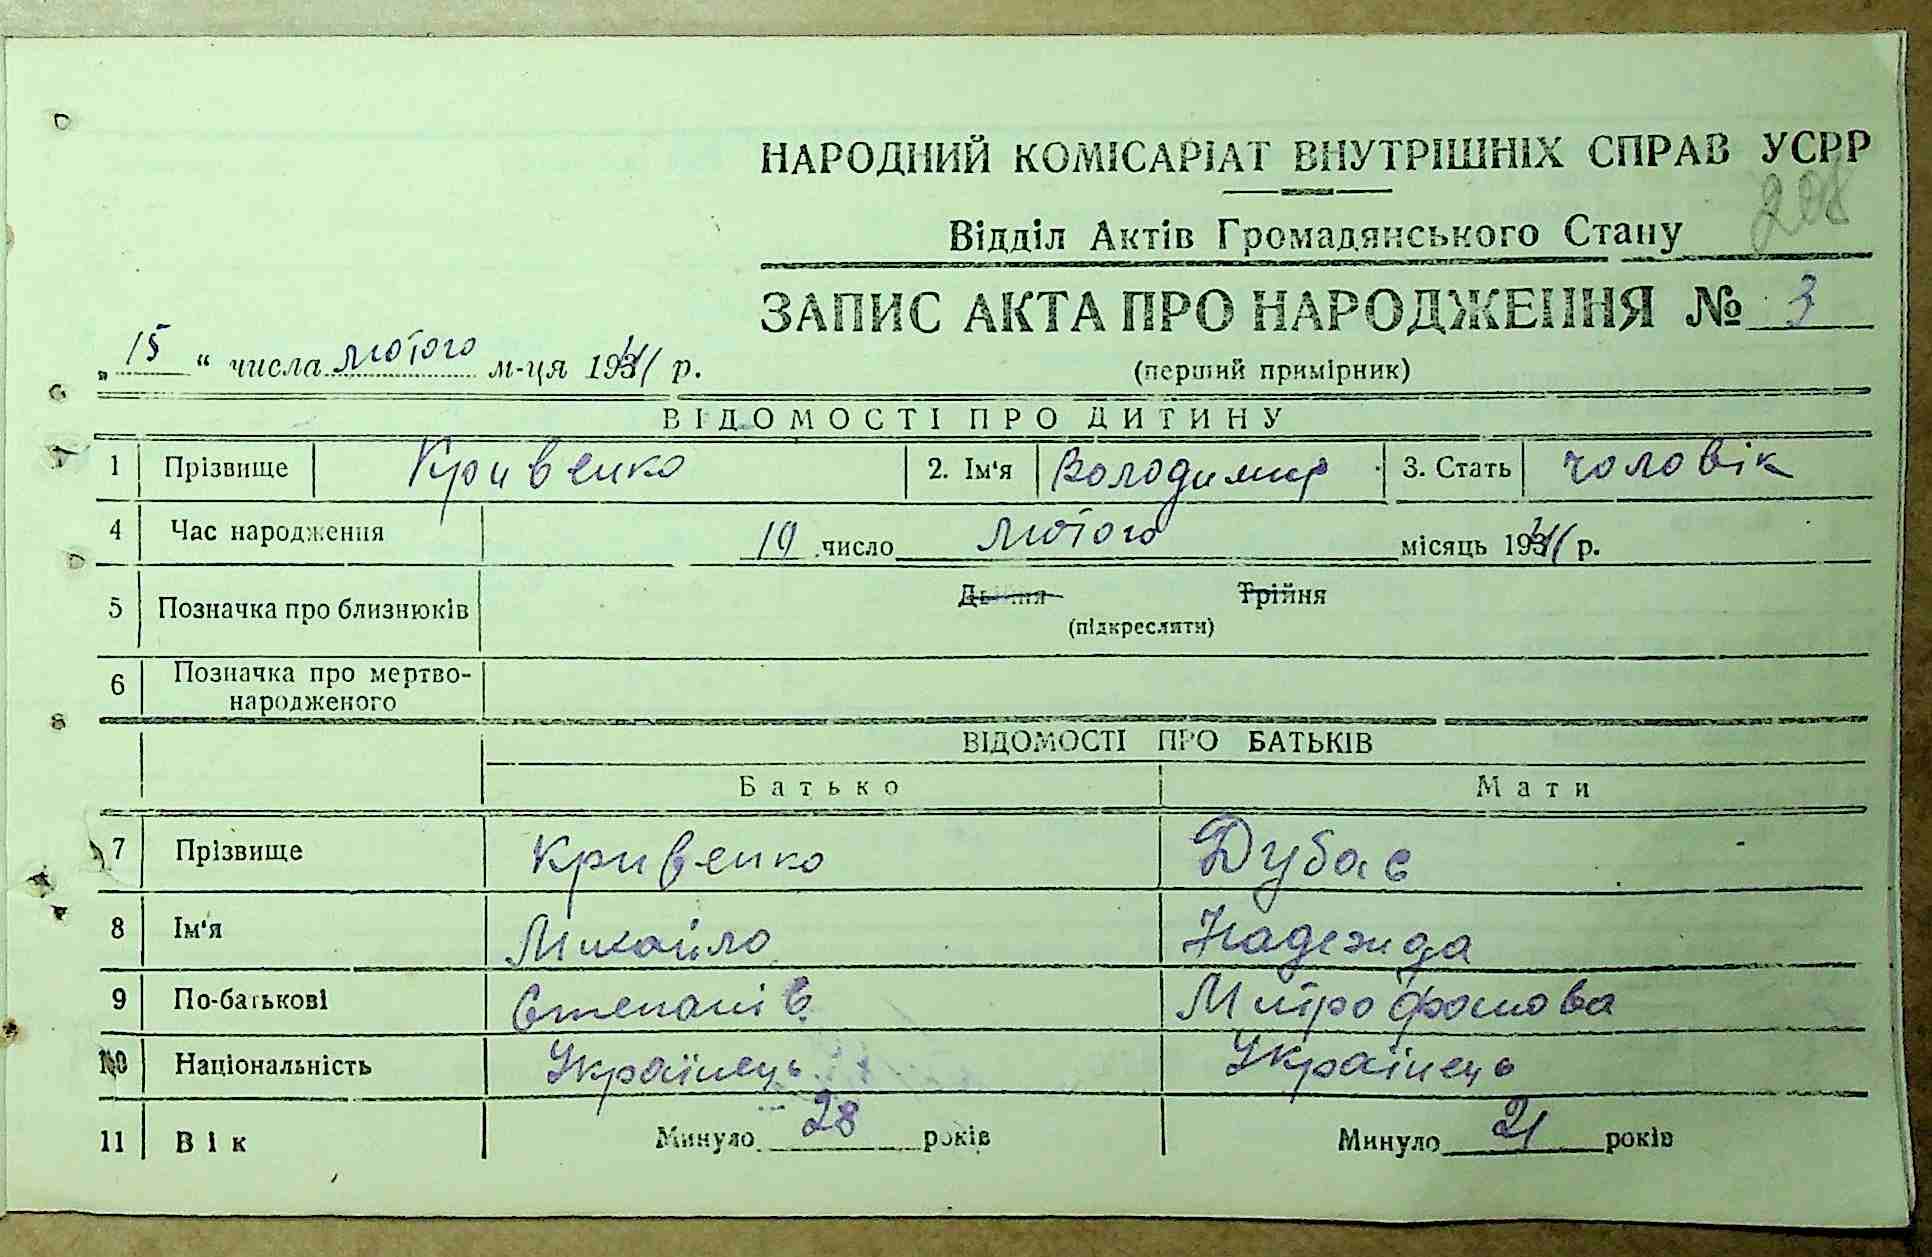 НАРОДНИЙ КОМІСАРІАТ ВНУТРІШНІХ СПРАВ УСРР
208
Відділ Актів Громадянського Стану
ЗАПИС АКТА ПРО НАРОДЖЕННЯ № 3
„15“ числа лютого м-ця 1941 р.
(перший примірник)
ВІДОМОСТІ ПРО ДИТИНУ
1 Прізвище Кривенко 2. Ім'я Володимир 3. Стать чоловік
4 Час народження 10 число лютого місяць 1941 р.
5 Позначка про близнюків Двійня Трійня
(підкреслити)
6 Позначка про мертво-
народженого
ВІДОМОСТІ ПРО БАТЬКІВ
Батько Мати
7 Прізвище Кривенко Дубас
8 Ім'я Михайло Надежда
9 По-батькові Степанів Митрофанова
10 Національність Українець Українець
11 Вік Минуло 28 років Минуло 21 років